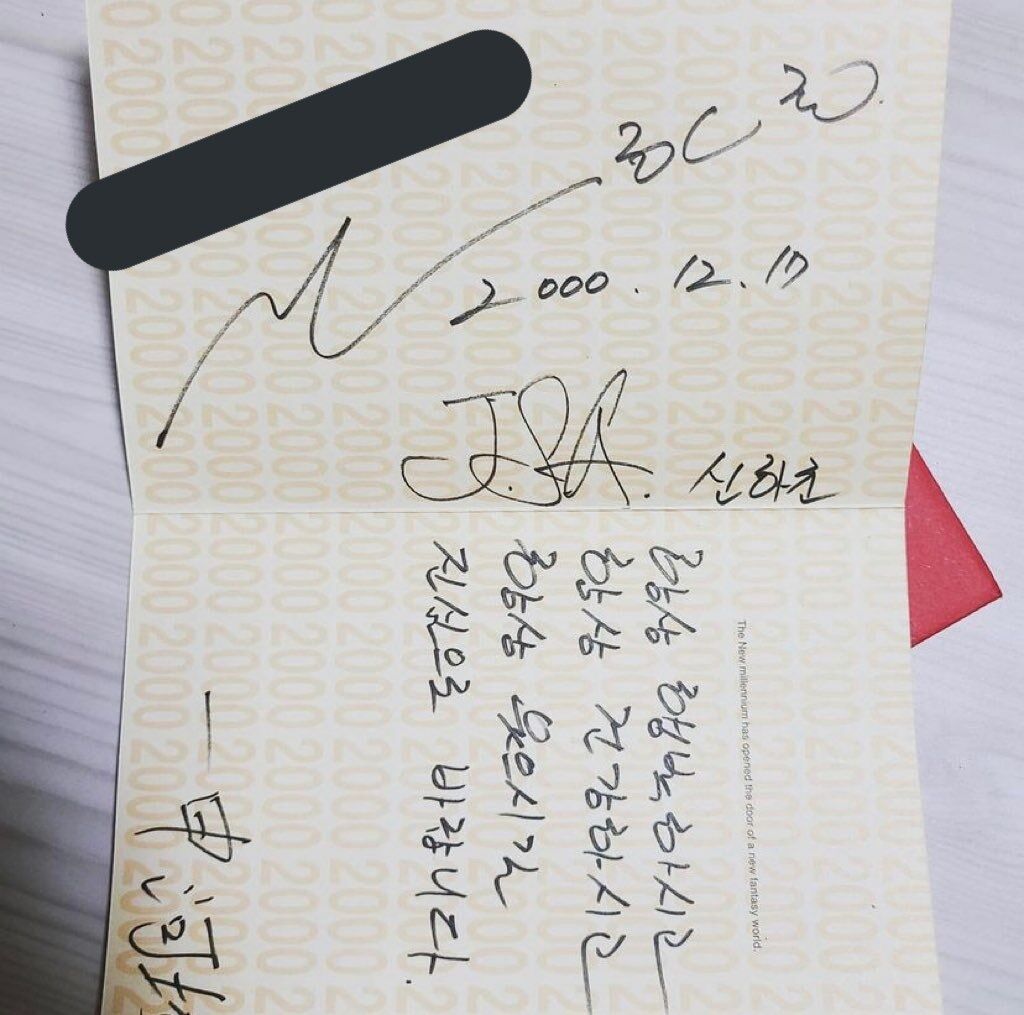 2000. 12. 17
J.S.A. 신하균
The New millennium has opened the door of a new fantasy world.
항상 행복하시고
항상 건강하시고
항상 웃으시길
진심으로 바랍니다.
- 申河